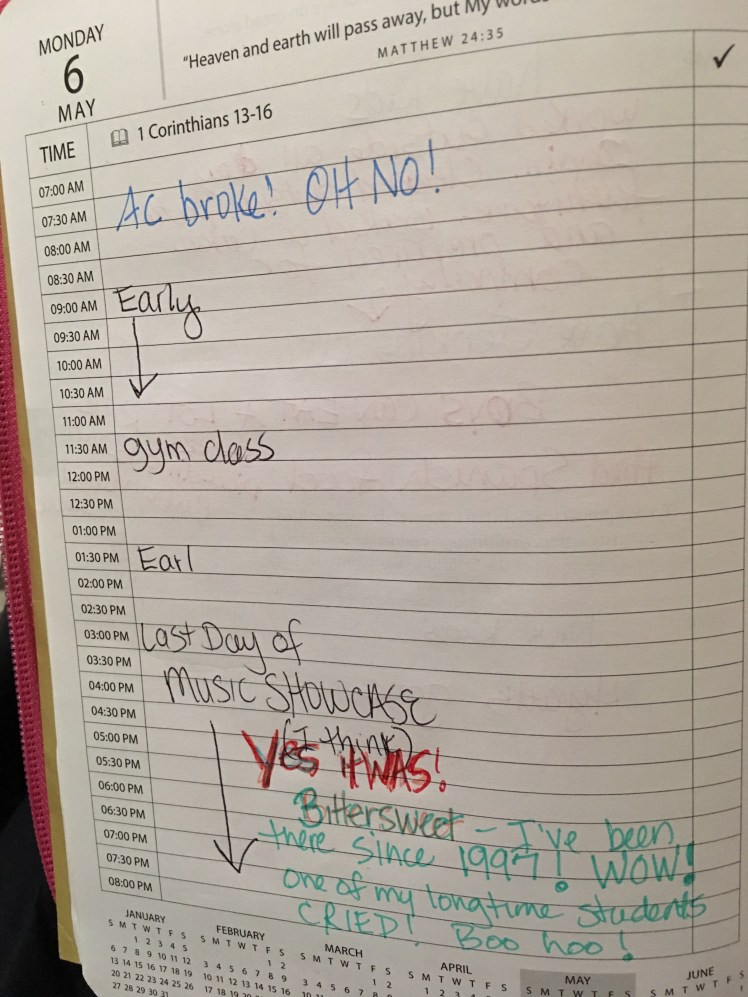 MONDAY
6
MAY
"Heaven and earth will pass away, but My
MATTHEW 24:35
TIME
1 Corinthians 13-16
✓
07:00 AM
07:30 AM AC broke! OH NO!
08:00 AM
08:30 AM
09:00 AM Early
09:30 AM
10:00 AM
10:30 AM
11:00 AM
11:30 AM gym class
12:00 PM
12:30 PM
01:00 PM
01:30 PM Earl
02:00 PM
02:30 PM
03:00 PM Last Day of
03:30 PM
04:00 PM MUSIC SHOWCASE
04:30 PM
05:00 PM (I think)
05:30 PM YES IT WAS!
06:00 PM
06:30 PM Bittersweet - I've been
07:00 PM there since 1997! WOW!
07:30 PM one of my longtime students
08:00 PM CRIED! Boo hoo!
JANUARY
S M T W T F S
1 2 3 4 5
6 7 8 9 10 11 12
13 14 15 16 17 18 19
20 21 22 23 24 25 26
27 28 29 30 31
FEBRUARY
S M T W T F S
1 2
3 4 5 6 7 8 9
10 11 12 13 14 15 16
MARCH
S M T W T F S
1 2
3 4 5 6 7 8 9
APRIL
S M T W T F S
MAY
S M T W T F S
JUNE
S M T W T F S